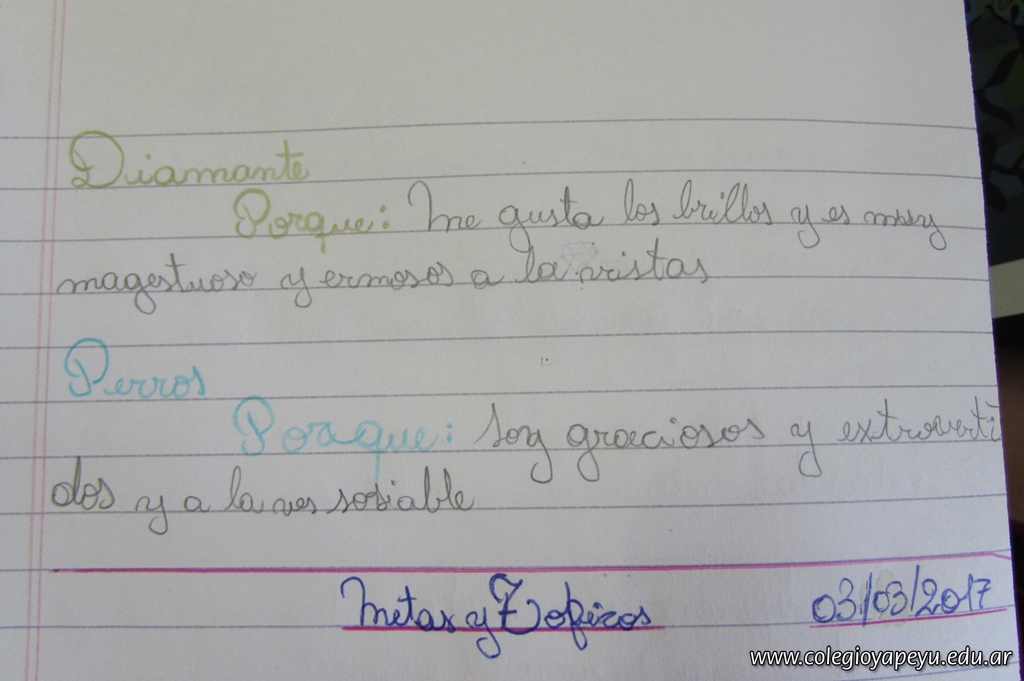 Diamante
Porque: me gusta los brillos y es muy
magestuoso y ermosos a la vistas
Perros
Porque: soy graciosos y extroverti
dos y a la ves sosiable
Metas y Zofiros 03/03/2017
www.colegioyapeyu.edu.ar